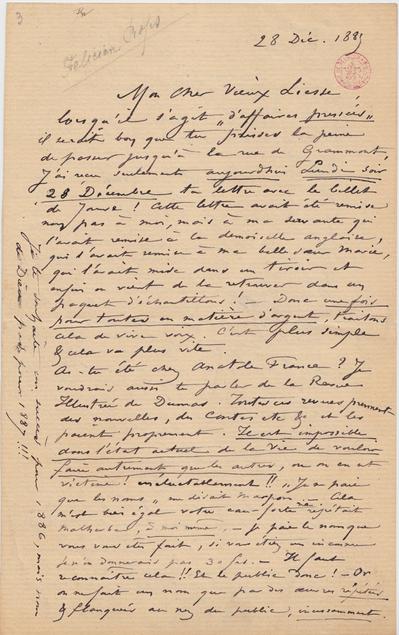 3
Félicien Rops
28 Déc. 1885
Mon Cher Vieux Liesse,
lorsqu'il s'agit "d'affaires pressées"
il serait bon que tu prisses la peine
de passer jusqu'à la rue de Grammont,
J'ai reçu seulement aujourdhui Lundi soir
28 Décembre ta lettre avec le billet
de Jouve ! Cette lettre avait été remise
non pas à moi, mais à ma servante qui
l'avait remise à la demoiselle anglaise,
qui l'avait remise à ma belle sœur Marie,
qui l'avait mise dans un tiroir et
enfin on vient de la retrouver dans un
paquet d'échantillons ! — Donc une fois
pour toutes en matière d'argent, traitons
cela de vive voix. C'est plus simple
& cela va plus vite.
As-tu été chez Anat. de France ? Je
voudrais aussi te parler de la Revue
Illustrée de Dumas. Toutes ces revues prennent
des nouvelles, des Contes etc & et les
paient, proprement. Il est impossible
dans l'état actuel de la Vie de vouloir
faire autrement que les autres, ou on en est
victime ! inéluctablement !! "Je ne paie
que les noms" me disait — Cela
m'est bien égal votre eau-forte répétait
Malherbe, à moi même, — je paie le nom que
vous vous êtes fait, si vous étiez un inconnu
je n'en donnerais pas 30 frs. — Il faut
reconnaître cela !! Et le public donc ! — Or
on ne fait un nom que par des œuvres répétées
& flanquées au nez du public,
Je te souhaite un succès pour 1886, mais nom
de Dieu pour 1887 !!!